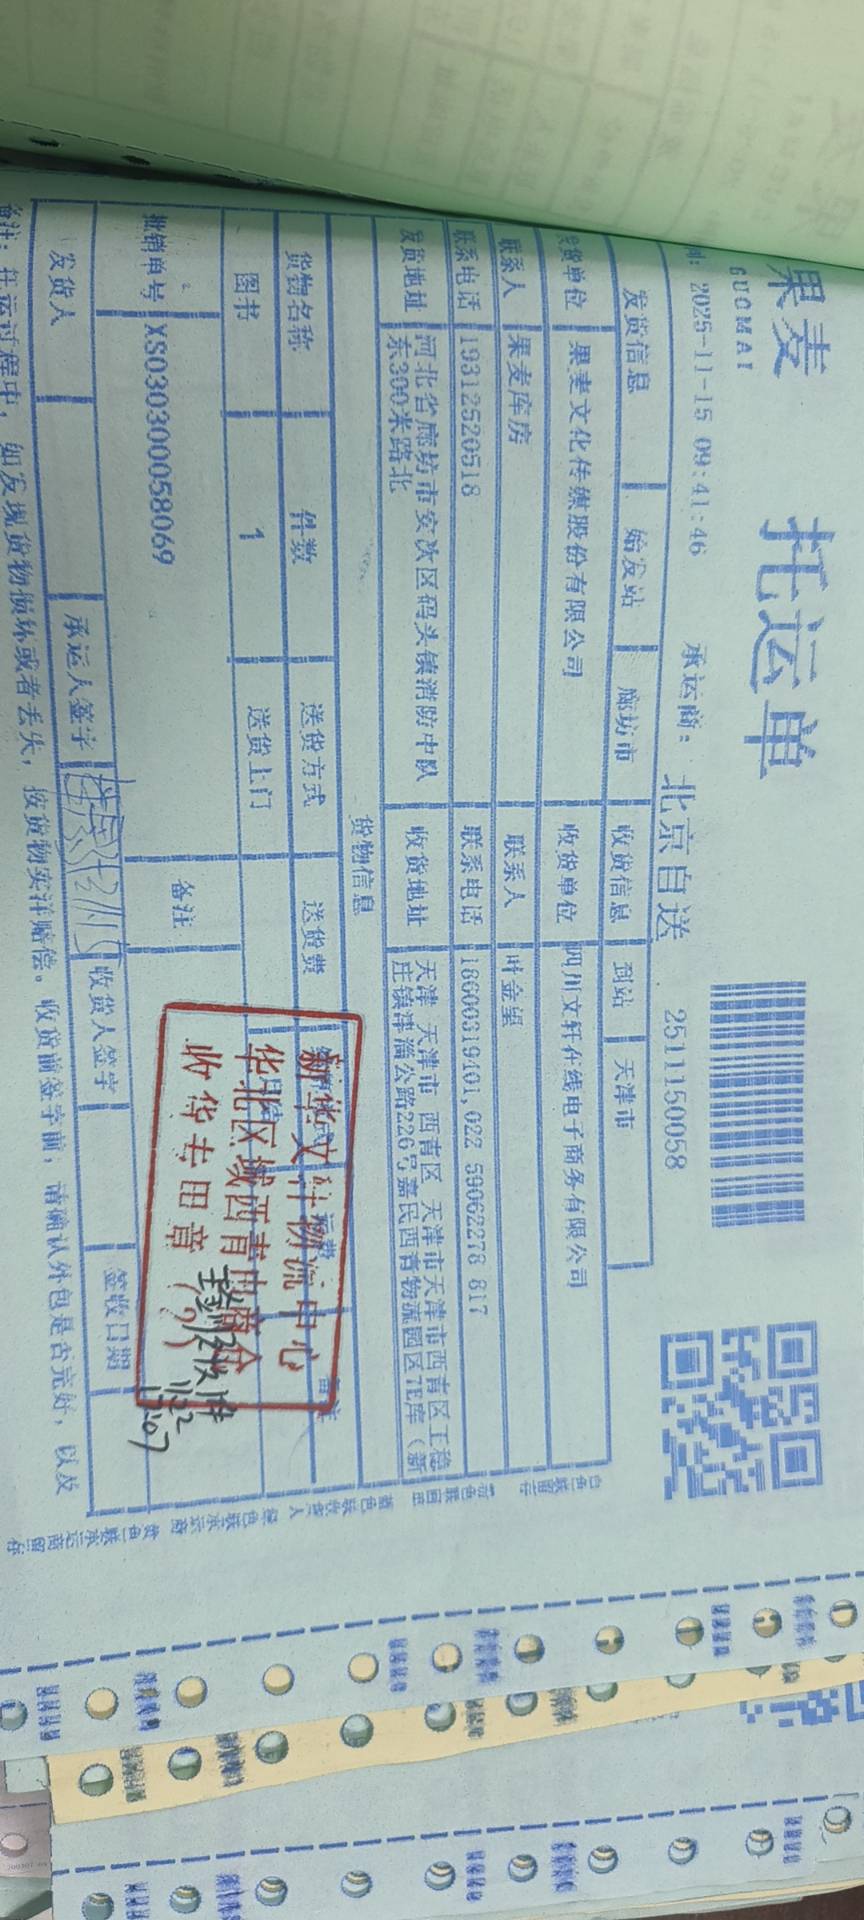 果麦
GUOMAI
托运单
2025-11-15 09:41:46 承运商: 北京自送 2511150058
发货信息 始发站 廊坊市 收货信息 到站 天津市
发货单位 果麦文化传媒股份有限公司 收货单位 四川文轩在线电子商务有限公司
联系人 果麦库房 联系人 叶金望
联系电话 19312520518 联系电话 18600319401,022 59062278 817
发货地址 河北省廊坊市安次区码头镇消防中队东300米路北 收货地址 天津 天津市 西青区 天津市天津市西青区王稳庄镇津淄公路226号嘉民西青物流园区7E库（新
货物信息
货物名称 件数 送货方式 送货费 运费 备注
图书 1 送货上门
批销单号 XS030300058069 备注
新华文轩物流中心
华北区域西青电商仓
收货专用章
(9)
11.22
17:07
发货人 承运人签字 收货人签字 签收日期
备注: 托运过程中, 如发现货物损坏或者丢失, 按货物实洋赔偿。收货前签字前, 请确认外包是否完好, 以及
白色联留存
蓝色联收货人
绿色联承运商
黄色联承运商留存